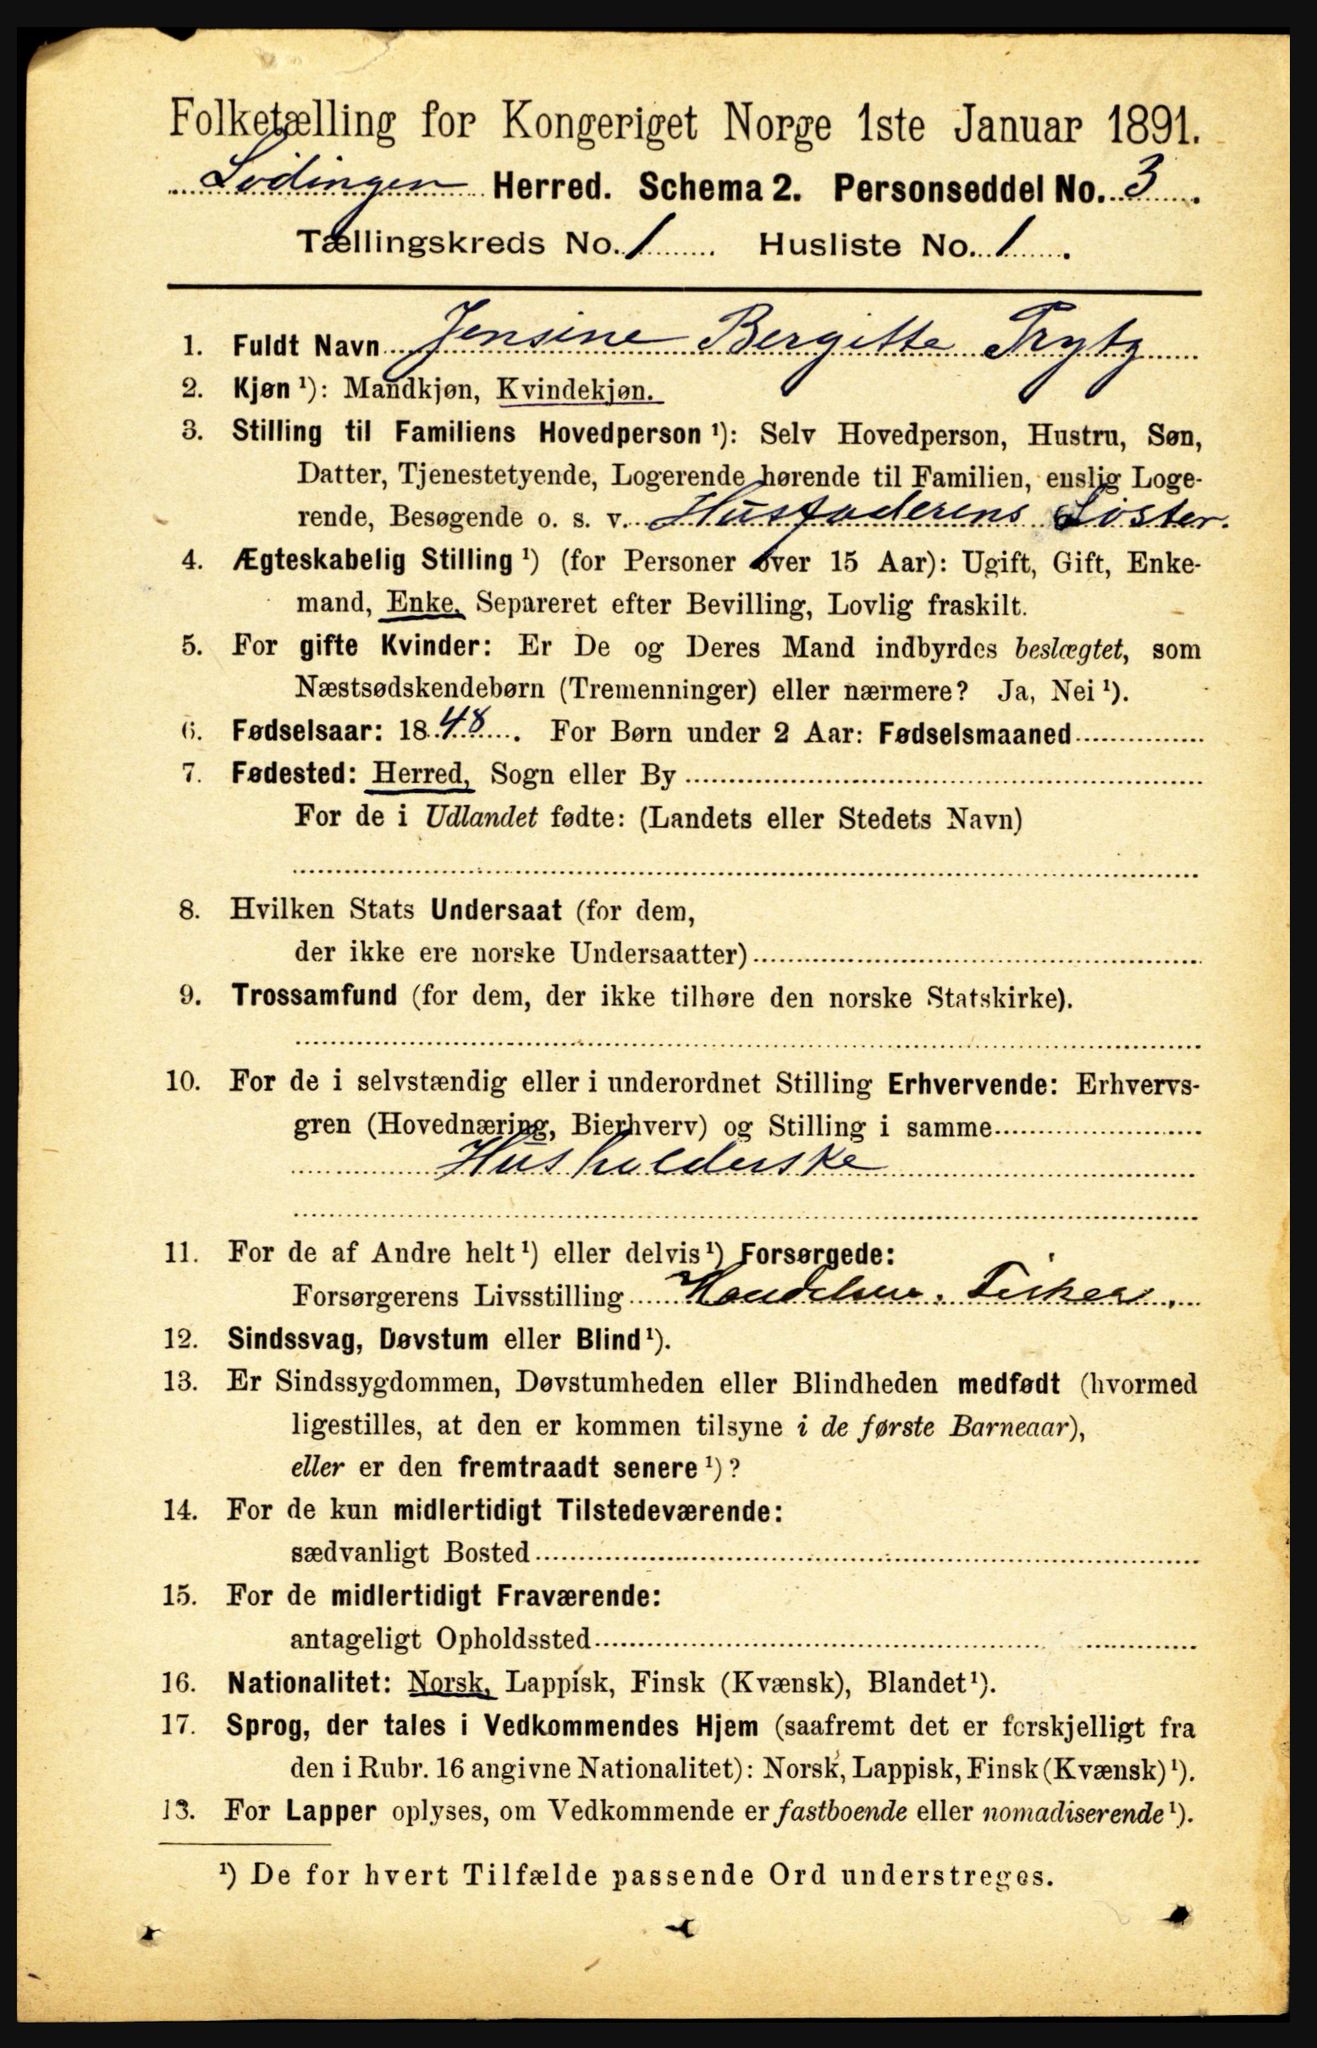 Folketælling for Kongeriget Norge 1ste Januar 1891.
Lødingen Herred. Schema 2. Personseddel No. 3.
Tællingskreds No. 1. Husliste No. 1.
1. Fuldt Navn Jensine Bergitte Trytz
2. Kjøn ¹): Mandkjøn, Kvindekjøn.
3. Stilling til Familiens Hovedperson ¹): Selv Hovedperson, Hustru, Søn,
Datter, Tjenestetyende, Logerende hørende til Familien, enslig Loge-
rende, Besøgende o. s. v. Husfaderens Søster.
4. Ægteskabelig Stilling ¹) (for Personer over 15 Aar): Ugift, Gift, Enke-
mand, Enke, Separeret efter Bevilling, Lovlig fraskilt.
5. For gifte Kvinder: Er De og Deres Mand indbyrdes beslægtet, som
Næstsødskendebørn (Tremenninger) eller nærmere? Ja, Nei ¹).
6. Fødselsaar: 1848. For Børn under 2 Aar: Fødselsmaaned
7. Fødested: Herred, Sogn eller By
For de i Udlandet fødte: (Landets eller Stedets Navn)
8. Hvilken Stats Undersaat (for dem,
der ikke ere norske Undersaatter)
9. Trossamfund (for dem, der ikke tilhøre den norske Statskirke).
10. For de i selvstændig eller i underordnet Stilling Erhvervende: Erhvervs-
gren (Hovednæring, Bierhverv) og Stilling i samme
Husholderske
11. For de af Andre helt ¹) eller delvis ¹) Forsørgede:
Forsørgerens Livsstilling
12. Sindssvag, Døvstum eller Blind ¹).
13. Er Sindssygdommen, Døvstumheden eller Blindheden medfødt (hvormed
ligestilles, at den er kommen tilsyne i de første Barneaar),
eller er den fremtraadt senere ¹)?
14. For de kun midlertidigt Tilstedeværende:
sædvanligt Bosted
15. For de midlertidigt Fraværende:
antageligt Opholdssted
16. Nationalitet: Norsk, Lappisk, Finsk (Kvænsk), Blandet ¹).
17. Sprog, der tales i Vedkommendes Hjem (saafremt det er forskjelligt fra
den i Rubr. 16 angivne Nationalitet): Norsk, Lappisk, Finsk (Kvænsk) ¹).
13. For Lapper oplyses, om Vedkommende er fastboende eller nomadiserende ¹).
¹) De for hvert Tilfælde passende Ord understreges.